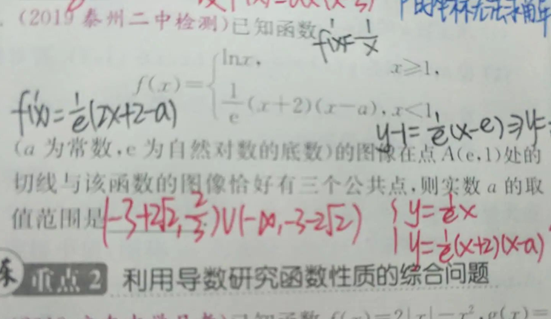 (2019 泰州二中检测)已知函数
f'(x)=1/x
f(x)={lnx, x≥1,
1/e(x+2)(x-a), x<1
f'(x)=1/e(2x+2-a)
y-1=1/e(x-e)⇒y=
(a 为常数,e 为自然对数的底数)的图像在点 A(e,1)处的
切线与该函数的图像恰好有三个公共点,则实数 a 的取
值范围是(-3+2√2, 2/3)∪(-∞,-3-2√2)
{y=1/e x
y=1/e(x+2)(x-a)
重点 2 利用导数研究函数性质的综合问题